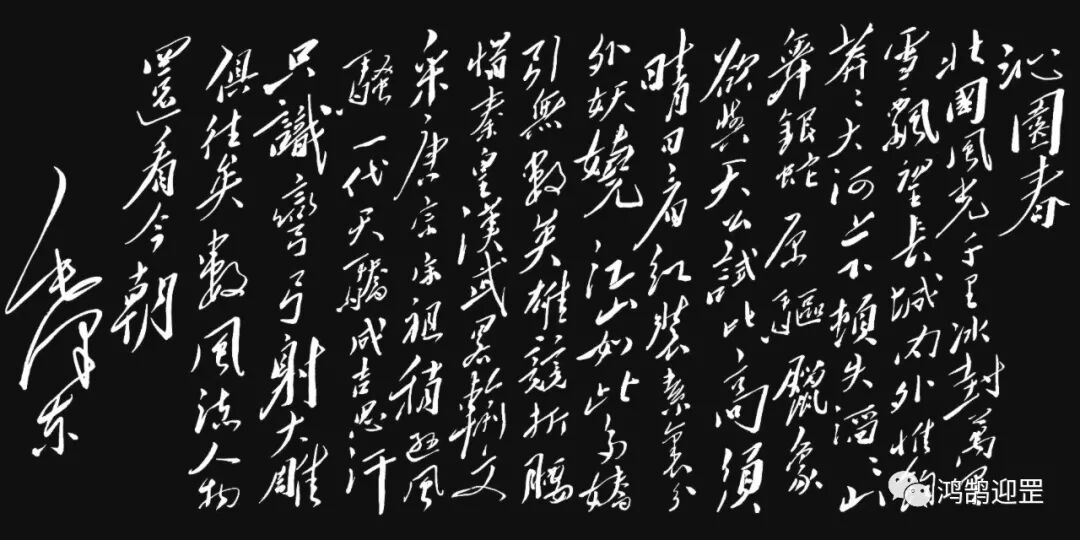 沁園春
北國風光千里冰封萬里
雪飄望長城內外惟餘
莽〻大河上下頓失滔〻山
舞銀蛇原驅臘象
欲與天公試比高須
晴日看紅裝素裹分
外妖嬈江山如此多嬌
引無數英雄競折腰
惜秦皇漢武略輸文
采唐宗宋祖稍遜風
騷一代天驕成吉思汗
只識彎弓射大雕
俱往矣數風流人物
還看今朝
毛澤東
鸿鹄迎罡